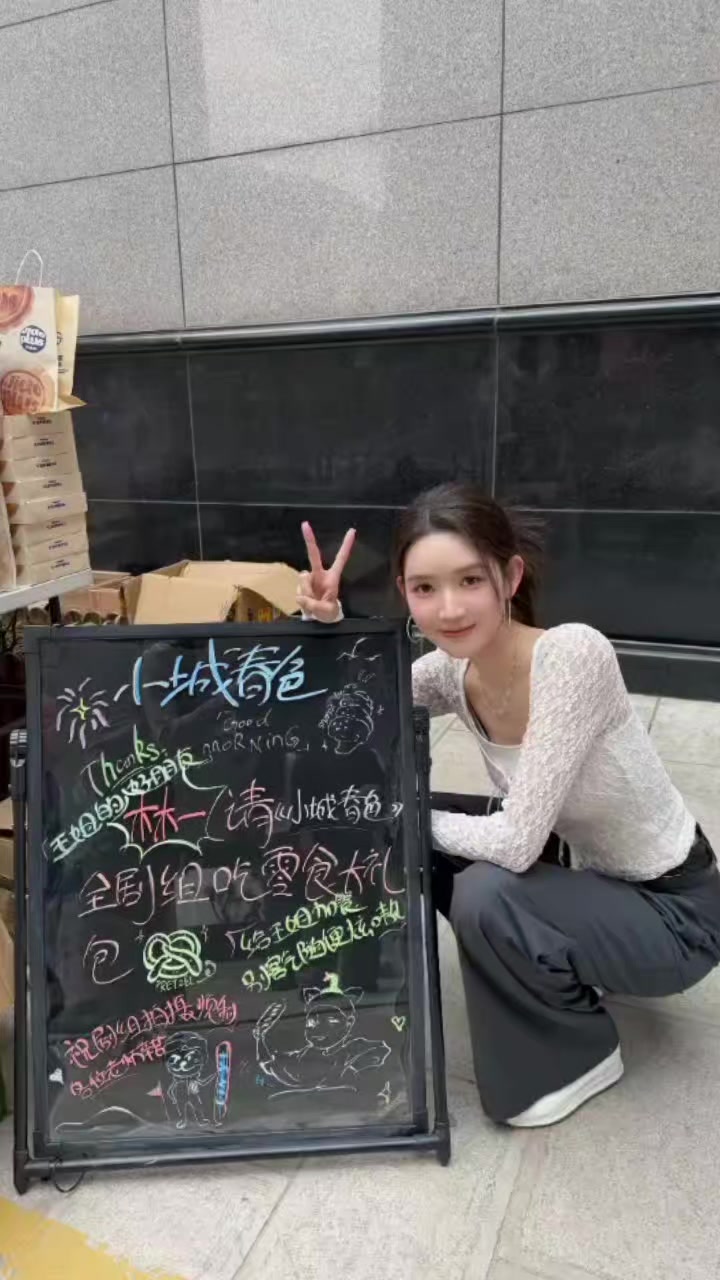 小城春色
Good
MORNING
Thanks
王姐的好朋友
林一 请《小城春色》
全剧组吃零食大礼
包
PRETZEL
给王姐加餐
祝剧组拍摄顺利
各位老师辛苦